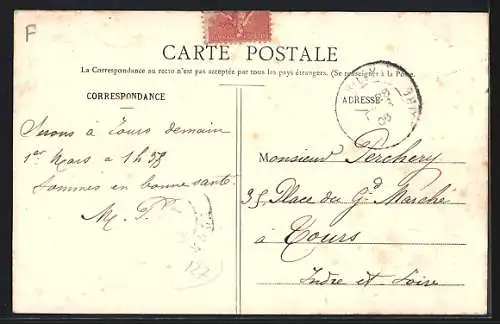 F
CARTE POSTALE
La Correspondance au recto n'est pas acceptée par tous les pays étrangers. (Se renseigner à la Poste
CORRESPONDANCE
ADRESSE
Serons à Tours demain
1er Mars à 1h 38
Sommes en bonne santé
M. P.
Monsieur Perchery
35 Place du Gd Marché
à Tours
Indre et Loire
127